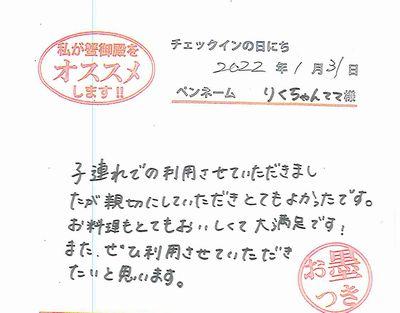 私が蟹御殿を
オススメ
します!!
チェックインの日にち
2022年1月31日
ペンネーム りくちゃんママ様
子連れでの利用させていただきまし
たが親切にしていただきとてもよかったです。
お料理もとてもおいしくて大満足です!
また、ぜひ利用させていただき
たいと思います。
お墨
つき